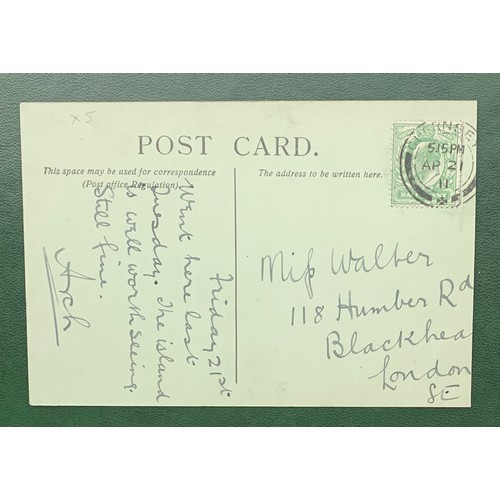 x5
POST CARD.
This space may be used for correspondence
(Post office Regulation).
The address to be written here.
GUERNSEY
5.15PM
AP 21
11
Friday 21st
Went here last
Tuesday. The island
is well worth seeing.
Still fine.
Arch
Miss Walter
118 Humber Rd
Blackhea
London
SE